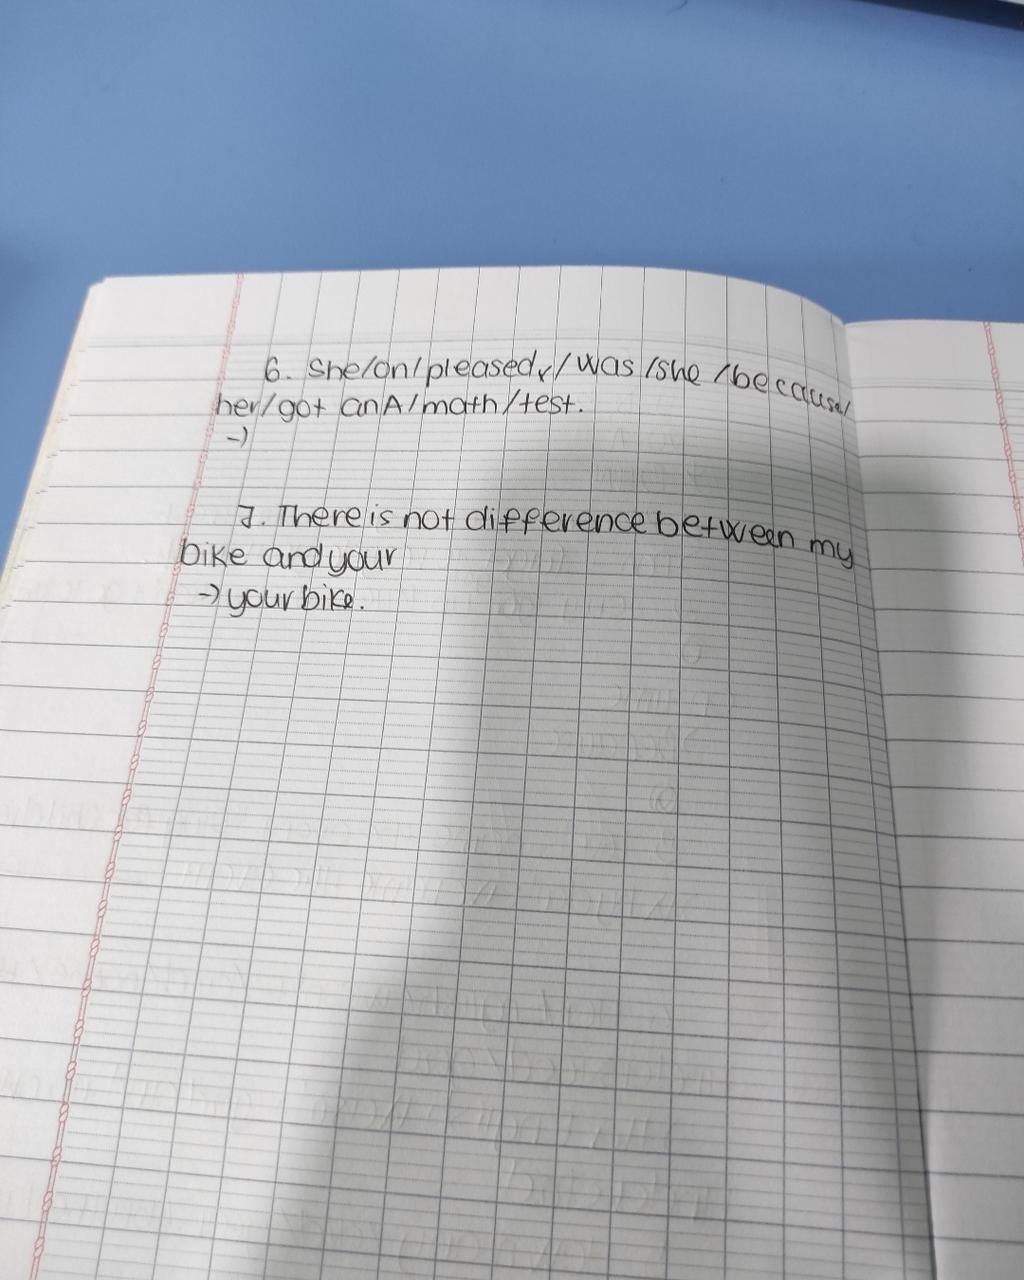 6. She/on/pleased,/was/she/because/
her/got an A/math/test.
->
7. There is not difference between my
bike and your
-> your bike.